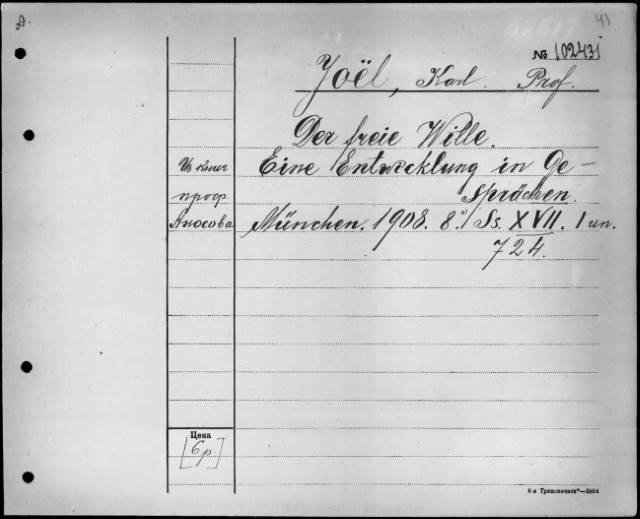 41
№ 102431
Joël, Karl. Prof.
Der freie Wille.
Eine Entwicklung in Ge-
sprächen.
München. 1908. 8°. Ss. XVII. 1 un.
724.
Из книг
проф.
Аносова
Цена
[6 р.]
8-я Гриппечать"—3804